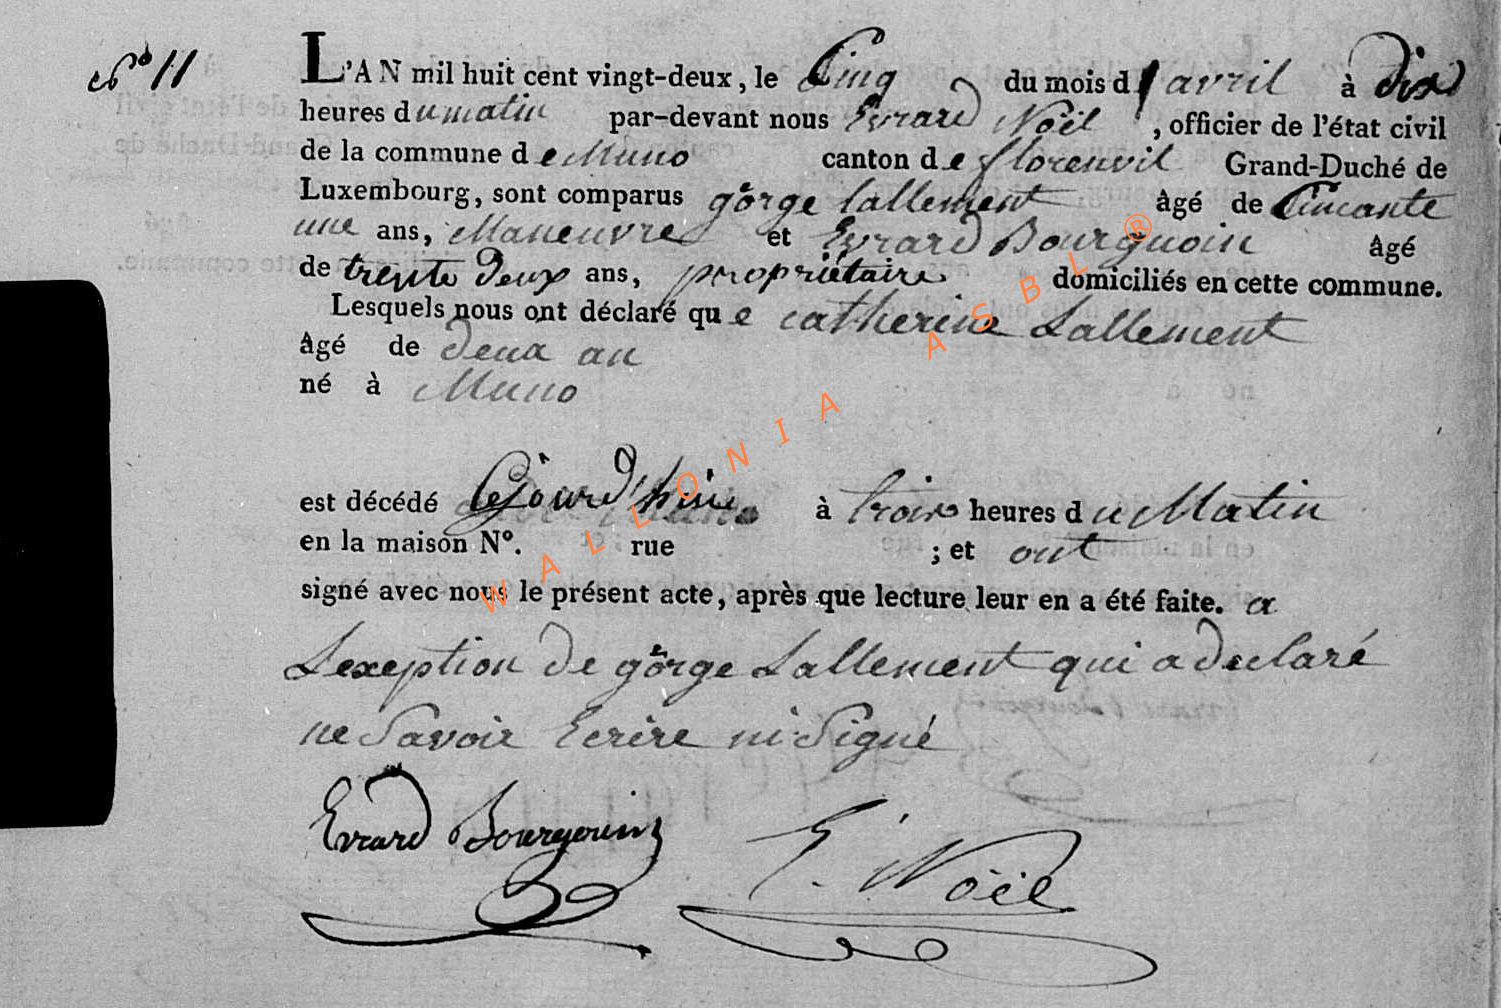 N° 11
L'AN mil huit cent vingt-deux, le Cinq du mois d'avril à dix
heures du matin par-devant nous Evrard Noël, officier de l'état civil
de la commune de Muno canton de florenvil Grand-Duché de
Luxembourg, sont comparus görge lallement âgé de Cincante
une ans, Maneuvre et Evrard Bourguoin âgé
de trente deux ans, propriétaire domiciliés en cette commune.
Lesquels nous ont déclaré que catherine Lallement
âgé de deux an
né à Muno
est décédé Cejourd'huie à trois heures du Matin
en la maison N°. rue ; et ont
signé avec nous le présent acte, après que lecture leur en a été faite. a
Lexeption de görge Lallement qui a declaré
ne Savoir Ecrire ni Signé
Evrard Bourgouin E. Noël
WALLONIA ASBL ®